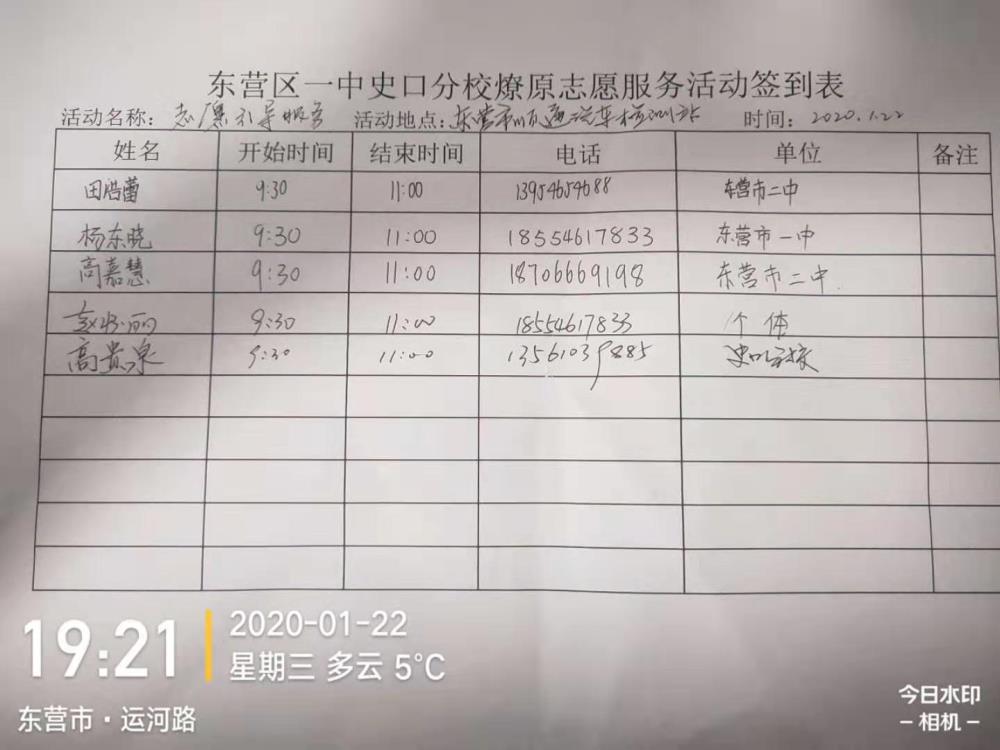 东营区一中史口分校燎原志愿服务活动签到表
活动名称：志愿引导服务 活动地点：东营市 通汽车检测站 时间：2020.1.22
姓名 开始时间 结束时间 电话 单位 备注
田皓蕾 9:30 11:00 13954654688 东营市二中
杨东晓 9:30 11:00 18554617833 东营市一中
高嘉慧 9:30 11:00 18706669198 东营市二中
9:30 11:00 18554617833 个体
高贵泉 9:30 11:00 13561039885 史口学校
19:21
2020-01-22
星期三 多云 5℃
东营市·运河路
今日水印
-相机-